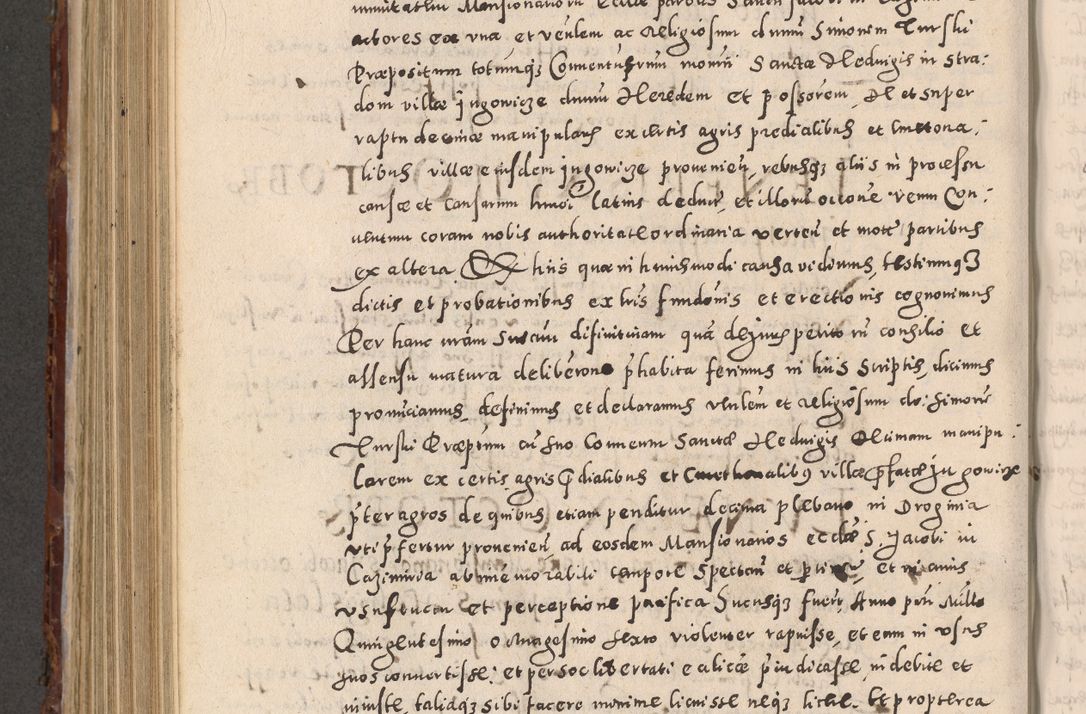 actores ex una et venlem ac Religiosum dnum Simonem Turski
Præpositum totumqz Conventus mon Sanctæ Heduigis in Stra:
dom villæ Jugowicze dnum Heredem et possorem, et super
raptu decimæ manipularis ex certis agris predialibus et Cmetona:
libus villæ eiusdem Jugowicze provenien, rebusqz aliis in processu
causæ et causarum hmoi latius deduc, et illorum occone venn Con:
ventum coram nobis authoritate ordinaria verten et mote partibus
ex altera Ex hiis quæ in huiusmodi causa vidimus, testimoniqz
dictis et probationibus ex lris fundonis et erectionis cognovimus
Per hanc nram difinitivam quam de Juris peritorum consilio et
assensu matura deliberone phabita ferimus in hiis scriptis, dicimus
pronunciamus, definimus et declaramus venlem et Religiosum do: Simonem
Turski Præptum cum suo Conventu Sanctæ Heduigis Decimam manipu:
larem ex certis agris pdialibus et Cmethonalibus villæ pfatæ Jugowicze
pter agros de quibus etiam penditur decima plebano in Droginia
uti pfertur provenien ad eosdem Mansionarios ecclæ S. Jacobi in
Cazimiria ab immemorabili tempore Spectan et et in annis
usufructu et perceptione pacifica hucusqz fuer, Anno pn Millo
Quingentesimo octuagesimo sexto violenter rapuisse, et eam in usus
suos convertisse: et per soc libertati ecclicæ piudicasse, indebite et
iniuste, taliaqz sibi facere minime licuisse neqz licere. Et propterea